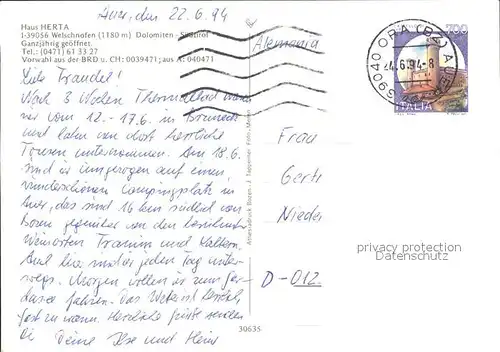 Auer, den 22.6.94
Haus HERTA
I-39056 Welschnofen (1180 m) Dolomiten - Südtirol
Ganzjährig geöffnet.
Tel.: (0471) 61 33 27
Vorwahl aus der BRD u. CH: 0039471; aus A: 040471
Liebe Traudel!
Nach 3 Wochen Thermalbad waren
wir vom 12.-17.6. in Bruneck
und haben von dort herrliche
Touren unternommen. Am 18.6.
sind wir umgezogen auf einen
wunderschönen Campingplatz in
Auer, das sind 16 km südlich von
Bozen gegenüber von den berühmten
Weinorten Tramin und Kaltern.
Auch hier sind wir jeden Tag unter-
wegs. Morgen wollen wir zum Gar-
dasee fahren. Das Wetter ist herrlich,
fast zu warm. Herrliche Grüße senden
Dir Deine Ilse und Heinz
Amonn-druck Bozen - J. Tappeiner Foto-
30635
Alemania
700
39040 ORA (BZ) AUER
24.6.94-8
ITALIA
Frau
Gert
Nieder
D-012
privacy protection
Datenschutz